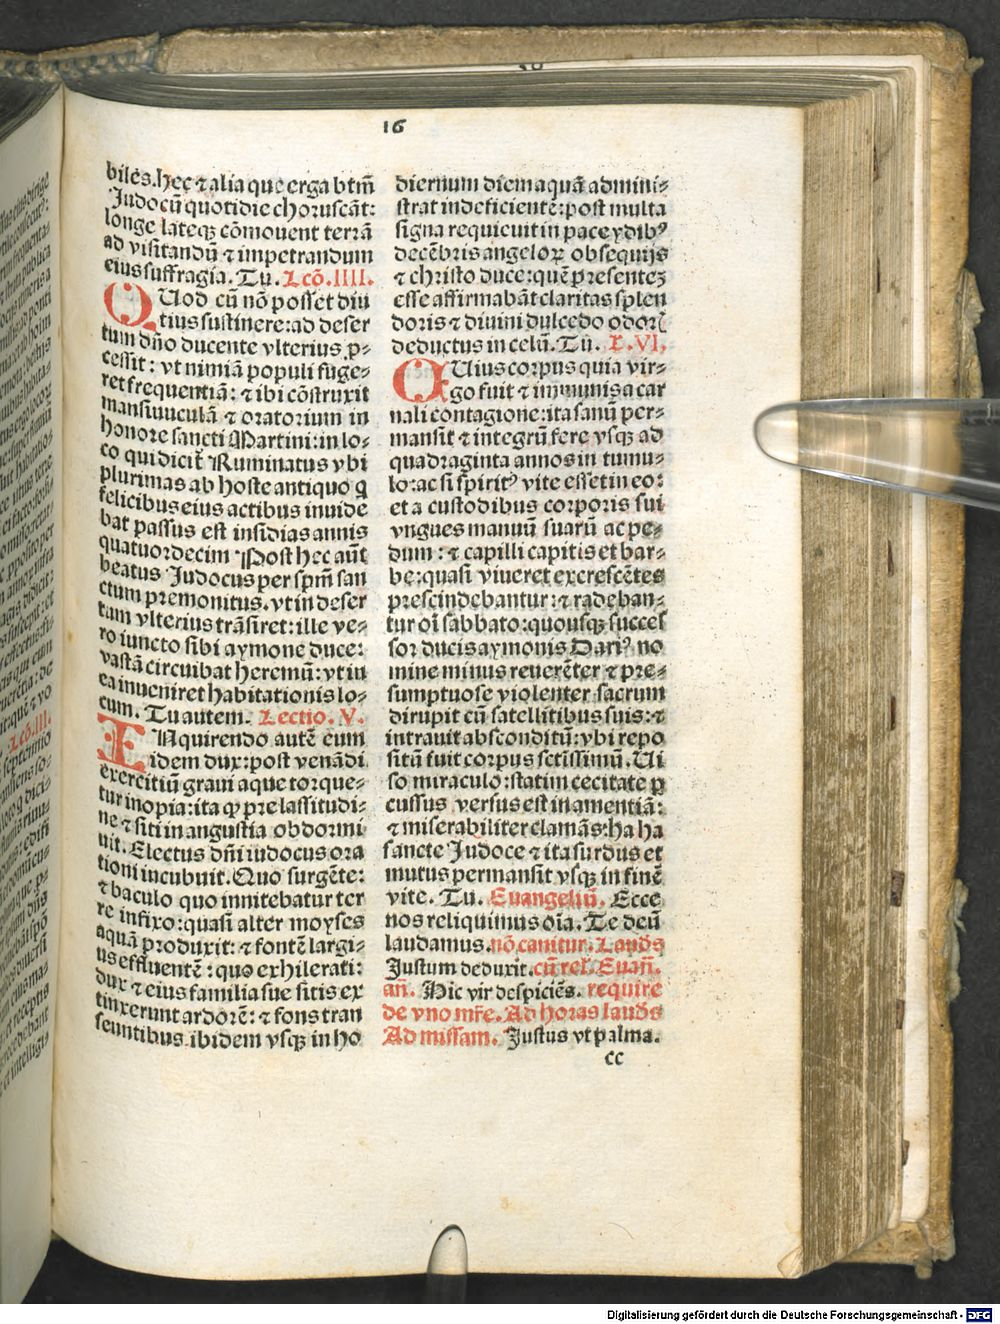 16
biles. hec ⁊ alia que erga btm̄
Judocū quotidie choruscāt:
longe lateqꝫ cōmouent terrā
ad visitandū ⁊ impetrandum
eius suffragia. Tu. Lcō. IIII.
QUod cū nō posset diu
tius sustinere: ad deser
tum dn̄o ducente vlterius ꝓ⸗
cessit: vt nimiā populi fuge⸗
ret frequentiā: ⁊ ibi cōstruxit
mansiunculā ⁊ oratorium in
honore sancti Martini: in lo⸗
co qui dicit̄ Ruminatus vbi
plurimas ab hoste antiquo q̄
felicibus eius actibus inuide
bat passus est insidias annis
quatuordecim Post hec aūt
beatus Judocus per spm̄ san
ctum premonitus. vt in deser
tum vlterius trāsiret: ille ve⸗
ro iuncto sibi aymone duce:
vastā circuibat heremū: vt in
ea inueniret habitationis lo⸗
cum. Tu autem. Lectio. V.
INquirendo autē eum
idem dux: post venādi
exercitiū graui aque torque⸗
tur inopia: ita qꝫ pre lassitudi⸗
ne ⁊ siti in angustia obdormi
uit. Electus dn̄i iudocus ora
tioni incubuit. Quo surgēte:
⁊ baculo quo innitebatur ter
re infixo: quasi alter moyses
aquā produxit: ⁊ fontē largi⸗
us effluentē: quo exhilerati:
dux ⁊ eius familia sue sitis ex
tinxerunt ardorē: ⁊ fons tran
seuntibus ibidem vsqꝫ in ho
diernum diem aquā admini⸗
strat indeficientē: post multa
signa requieuit in pace ydibꝰ
decēbris angeloꝝ obsequijs
⁊ christo duce: quē presentez
esse affirmabāt claritas splen
doris ⁊ diuini dulcedo odorꝭ
deductus in celū. Tu. L. VI.
CUius corpus quia vir⸗
go fuit ⁊ immunis a car
nali contagione: ita sanū per⸗
mansit ⁊ integrū fere vsqꝫ ad
quadraginta annos in tumu⸗
lo: ac si spiritꝰ vite esset in eo:
et a custodibus corporis sui
vngues manuū suarū ac pe⸗
dum: ⁊ capilli capitis et bar⸗
be: quasi viueret excrescētes
prescindebantur: ⁊ radeban⸗
tur oī sabbato: quousqꝫ succes
sor ducis aymonis Dariꝰ no
mine minus reuerēter ⁊ pre⸗
sumptuose violenter sacrum
dirupit cū satellitibus suis: ⁊
intrauit absconditū: vbi repo
sitū fuit corpus sctissimū. Ui
so miraculo: statim cecitate ꝑ
cussus versus est in amentiā:
⁊ miserabiliter clamās: ha ha
sancte Judoce ⁊ ita surdus et
mutus permansit vsqꝫ in finē
vite. Tu. Euangeliū. Ecce
nos reliquimus oīa. Te deū
laudamus. nō canitur. Laudꝭ
Justum deduxit. cū rel. Euan̄.
an̄. Hic vir despiciēs. require
de vno mr̄e. Ad horas laudꝭ
Ad missam. Justus vt palma.
cc
Digitalisierung gefördert durch die Deutsche Forschungsgemeinschaft - DFG